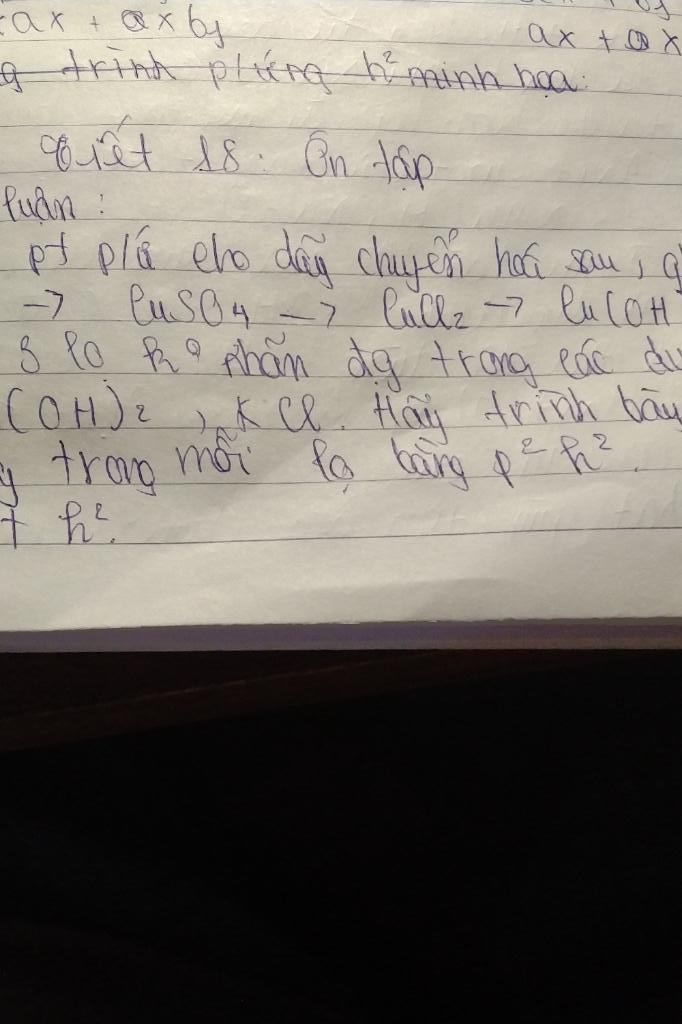 ax + ax by
ax + ax
g trình p/ứng h² minh họa:
Tiết 18: Ôn tập
luận:
pt p/ứ cho dãy chuyển hoá sau, g
→ CuSO4 → CuCl2 → Cu(OH
3 lọ k⁰ nhãn đg trong các du
(OH)2, KCl. Hãy trình bày
y trong mỗi lọ bằng p² h².
t h².